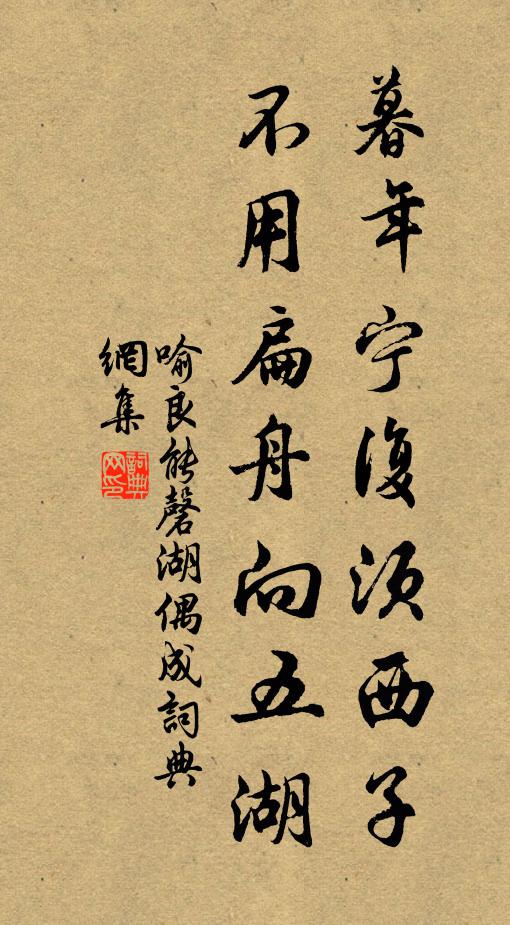 暮年宁復須西子
不用扁舟向五湖
喻良能磬湖偶成詞典
網集
詞典
网印